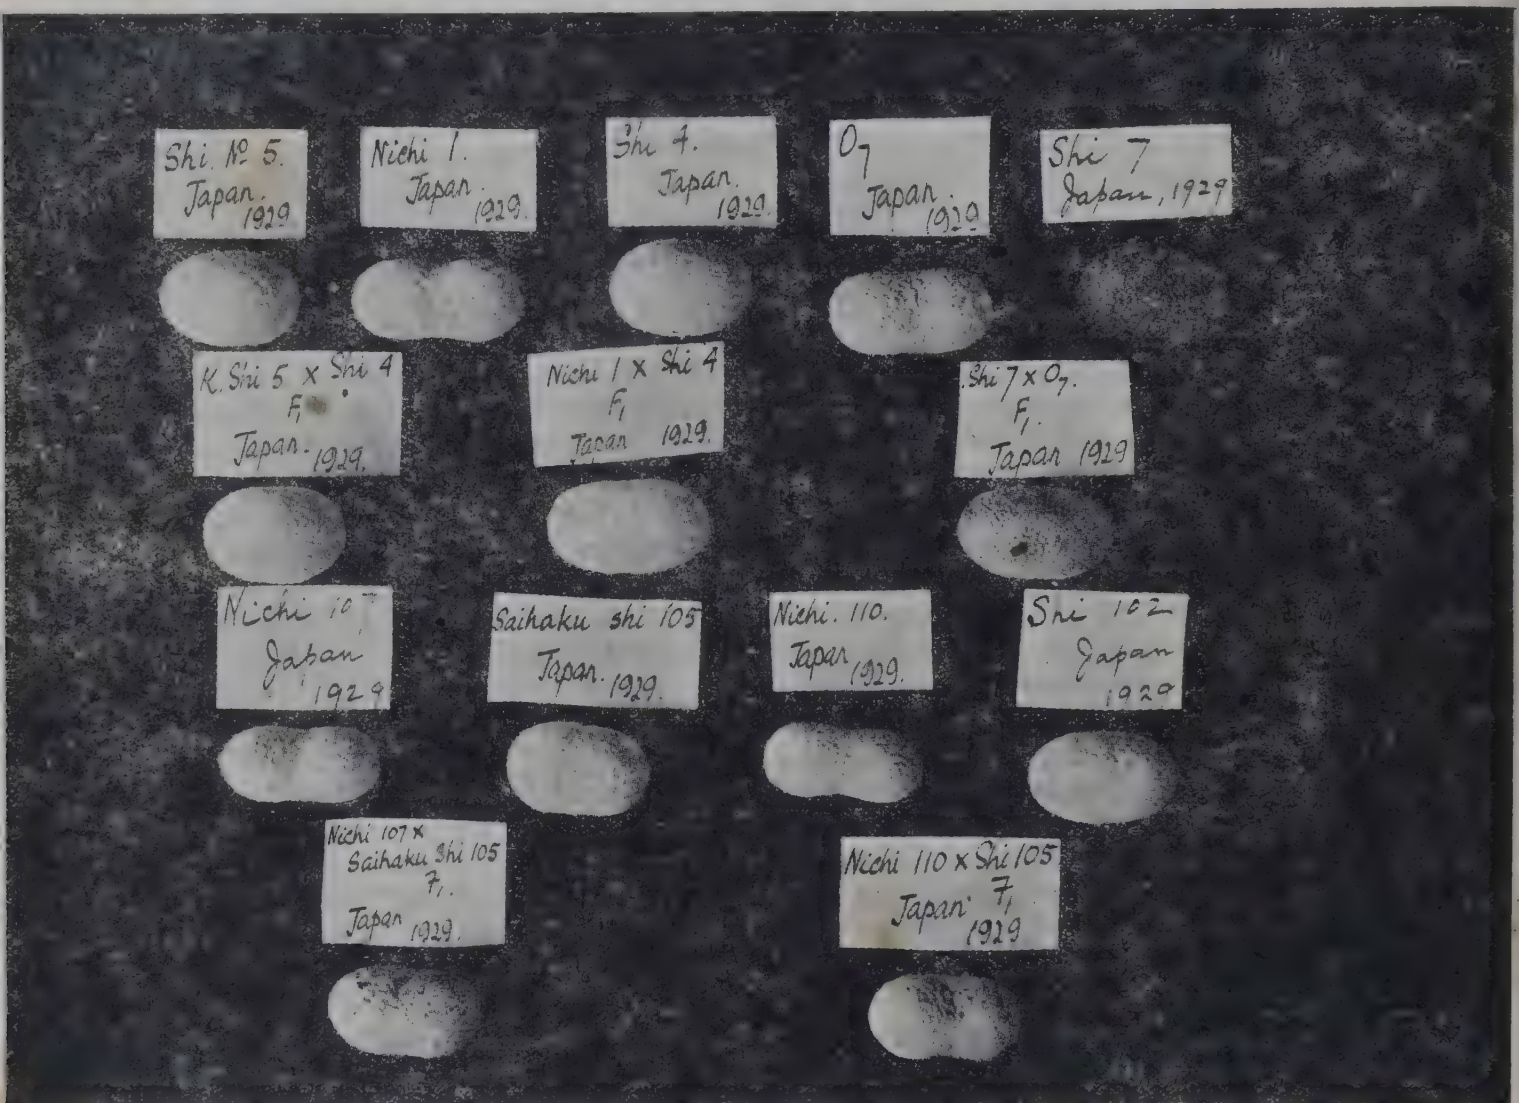 Shi. Nº 5.
Japan.
1929
Nichi 1.
Japan.
1929.
Shi 4.
Japan.
1929.
O7
Japan.
1929
Shi 7
Japan, 1929
K. Shi 5 x Shi 4
F1
Japan. 1929.
Nichi 1 x Shi 4
F1
Japan 1929.
Shi 7 x O7.
F1.
Japan 1929
Nichi 107
Japan
1929
Saihaku shi 105
Japan.
1929.
Nichi. 110.
Japan
1929.
Shi 102
Japan
1929
Nichi 107 x
Saihaku Shi 105
F1.
Japan 1929.
Nichi 110 x Shi 105
Japan F1
1929